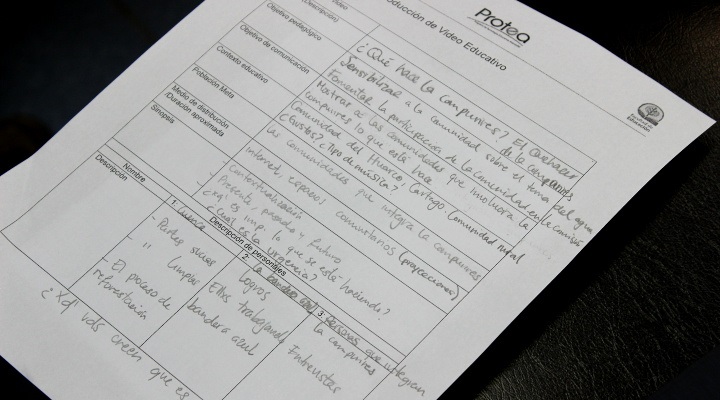 Protea
Producción de Video Educativo
(Descripción)
Objetivo pedagógico
Objetivo de comunicación
Contexto educativo
Población Meta
Medio de distribución
/Duración aproximada
Sinopsis
¿Qué hace la compuires? El
de la compuires
Sensibilizar a la comunidad sobre el tema del agua
Fomentar la participación de la comunidad en la
Mostrar a las comunidades que involucra la
compuires lo que está hace
Comunidad del Huarco, Cartago Comunidad rural
¿Gustos? ¿Tipo de música?
las comunidades que integra la compuires
Internet, espacios comunitarios (proyecciones)
Contextualización
- Presente, pasado y futuro
- ¿xq es imp. lo que se está haciendo?
- ¿Cuál es la urgencia?
Descripción de personajes
Nombre
1
2
3 Personas que integran
la compuires
Descripción
- Partes sucias
- " limpias
- El proceso de
reforestación
Logros
Ellos trabajando
bandera azul
Entrevistas
¿Xq' vds creen que es